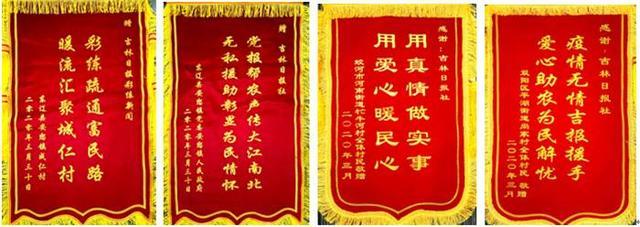 赠 吉林日报彩练新闻
彩练疏通富民路
暖流汇聚城仁村
东辽县安恕镇城仁村
二零二零年三月三十日
赠 吉林日报社
党报帮农声传大江南北
无私援助彰显为民情怀
东辽县安恕镇党委安恕镇人民政府
二零二零年三月三十日
感谢:吉林日报社
用真情做实事
用爱心暖民心
蛟河市河南街道忙牛河村全体村民 敬赠
二〇二〇年三月
感谢:吉林日报社
疫情无情吉报援手
爱心助农为民解忧
双阳区平湖街道尚家村全体村民 敬赠
二〇二〇年三月